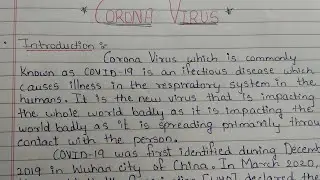 * CORONA VIRUS *
• Introduction :-
Corona Virus which is commonly
known as COVID-19 is an ifectious disease which
causes illness in the respiratory system in the
humans. It is the new virus that is impacting
the whole world badly as it is impacting the
world badly as it is spreading primarily throu
contact with the person.
COVID-19 was first identified during Decemb
2019 in Wuhan city of China. In March 2020,
declared the